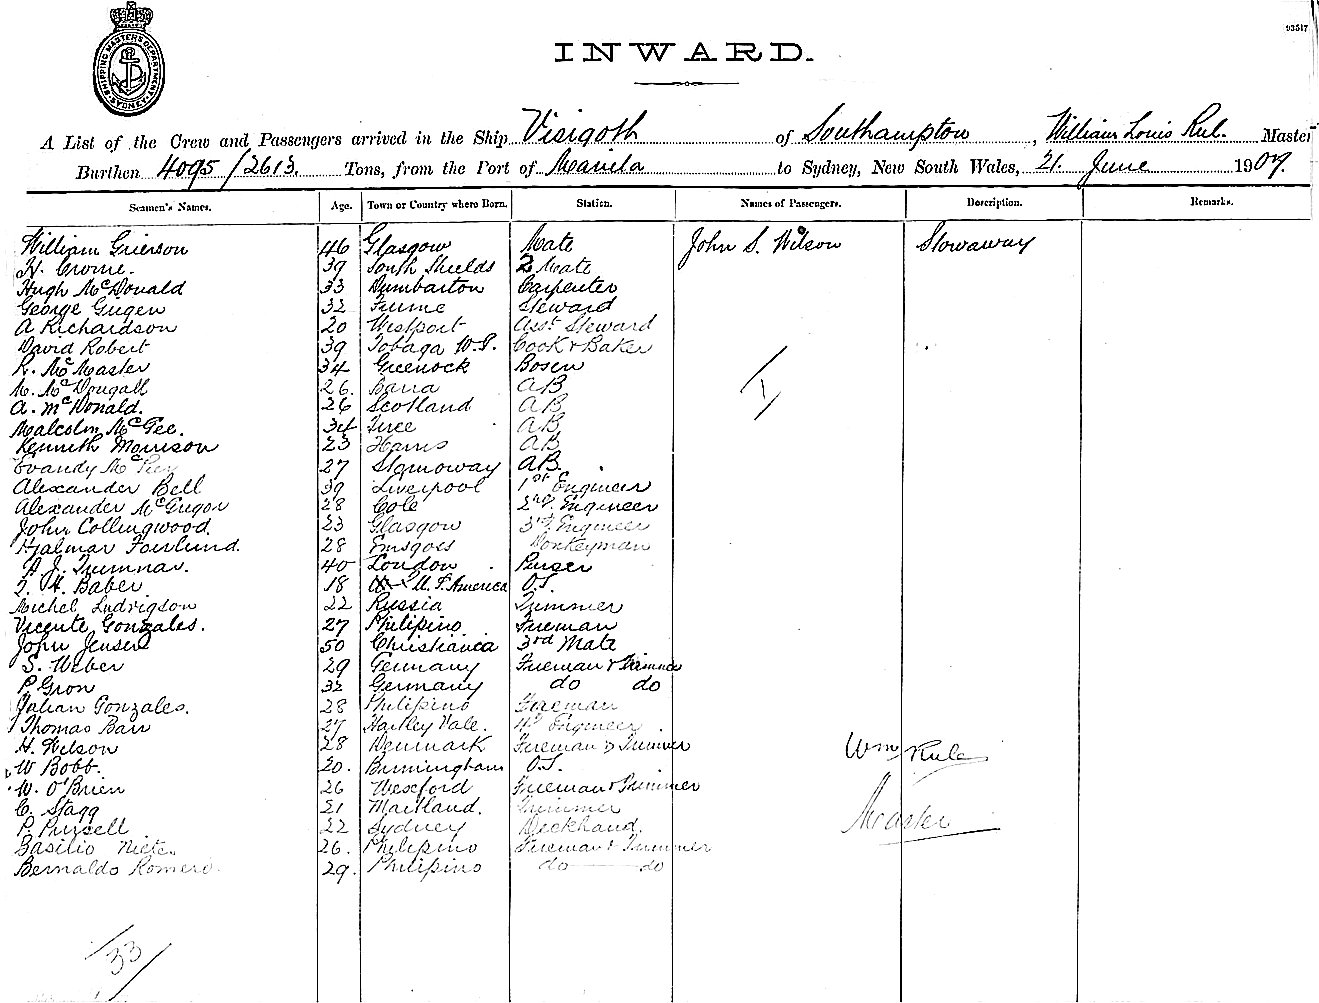 93517
SHIPPING MASTER'S DEPARTMENT SYDNEY
INWARD.
A List of the Crew and Passengers arrived in the Ship Visigoth of Southampton, William Louis Rule. Master
Burthen 4095/2613. Tons, from the Port of Manila to Sydney, New South Wales, 21. June 1909.
Seamen's Names. Age. Town or Country where Born. Station. Names of Passengers. Description. Remarks.
William Grierson 46 Glasgow Mate John S. Wilson Stowaway
H. Crome. 39 South Shields 2 Mate
Hugh McDonald 33 Dumbarton Carpenter
George Gugen 32 Fiume Steward
A Richardson 20 Westport Asst Steward
David Robert 39 Tobaga W.I. Cook & Baker
R. McMaster 34 Greenock Bosun
M. McDougall 26. Bana AB
A. McDonald. 26 Scotland AB
Malcolm McFee. 34 Tiree AB
Kenneth Morrison 23 Harris AB
27 Stornoway AB.
Alexander Bell 39 Liverpool 1st Engineer
Alexander McGregor 28 Cole 2nd. Engineer
John Collingwood. 23 Glasgow 3rd. Engineer
Hjalmar 28 Donkeyman
40 London Purser
T. H. Baber 18 U. S. America O.S.
Michel Ludvigson 22 Russia Trimmer
Vicente Gonzales. 27 Philipino Fireman
John Jensen 50 Christiania 3rd Mate
S. Weber 29 Germany Fireman & Trimmer
P Gron 32 Germany do do
Julian Gonzales. 28 Philipino Fireman
Thomas Barr 27 Hartley Vale. 4th Engineer
H. Nelson 28 Denmark Fireman & Trimmer
W Bobb. 20. Birmingham O.S.
W. O'Brien 26 Wexford Fireman & Trimmer
C. Stagg 21 Maitland. Trimmer
P. Pursell 22 Sydney Deckhand.
Basilio Nieto. 26. Philipino Fireman & Trimmer
Bernaldo Romero. 29. Philipino do do
1
Wm Rule
Master
33